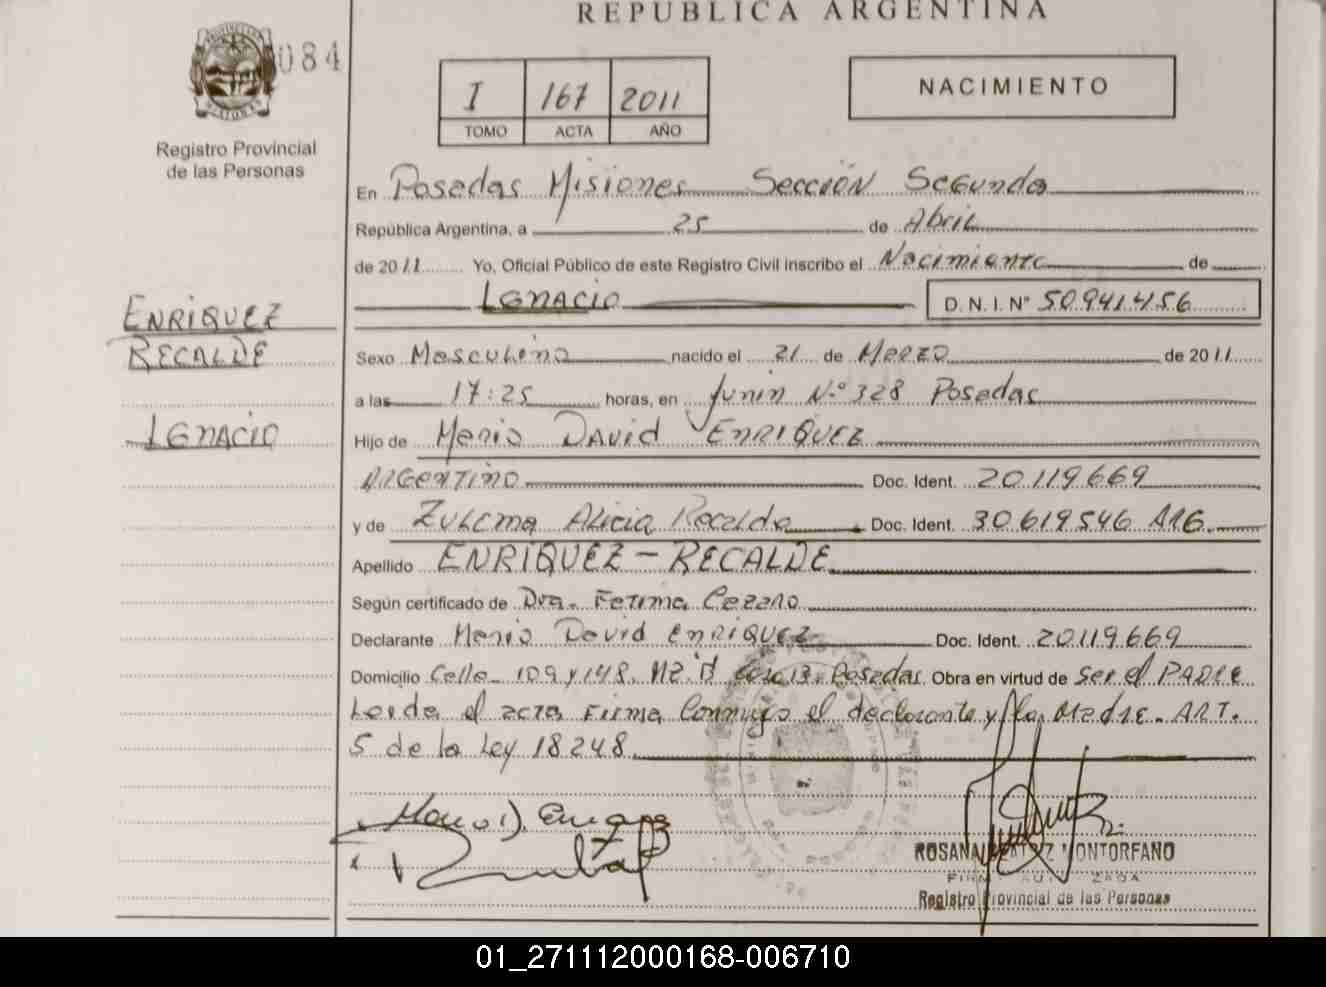 REPUBLICA ARGENTINA
084
Registro Provincial
de las Personas
I 167 2011
TOMO ACTA AÑO
NACIMIENTO
En Posadas Misiones Sección Segunda
República Argentina, a 25 de Abril
de 2011 Yo, Oficial Público de este Registro Civil inscribo el Nacimiento de
IGNACIO D.N.I. N° 50.941.456
ENRIQUEZ
RECALDE
IGNACIO
Sexo Masculino nacido el 21 de Marzo de 2011
a las 17:25 horas, en Junin N.º 328 Posadas
Hijo de Mario DAVID ENRIQUEZ
ARGENTINO Doc. Ident. 20.119.669
y de Zulema Alicia Recalde Doc. Ident. 30.619.546 ARG.
Apellido ENRIQUEZ - RECALDE
Según certificado de Dra. Fatima Cezaro
Declarante Mario David ENRIQUEZ Doc. Ident. 20.119.669
Domicilio Calle 109 y 148. MZ. D Posadas. Obra en virtud de ser el PADRE
Leida el acta Firma Conmigo el declarante y la Madre. ART.
5 de la Ley 18.248.
ROSANA BEATRIZ MONTORFANO
FIRMA AUTORIZADA
Registro Provincial de las Personas
01_271112000168-006710